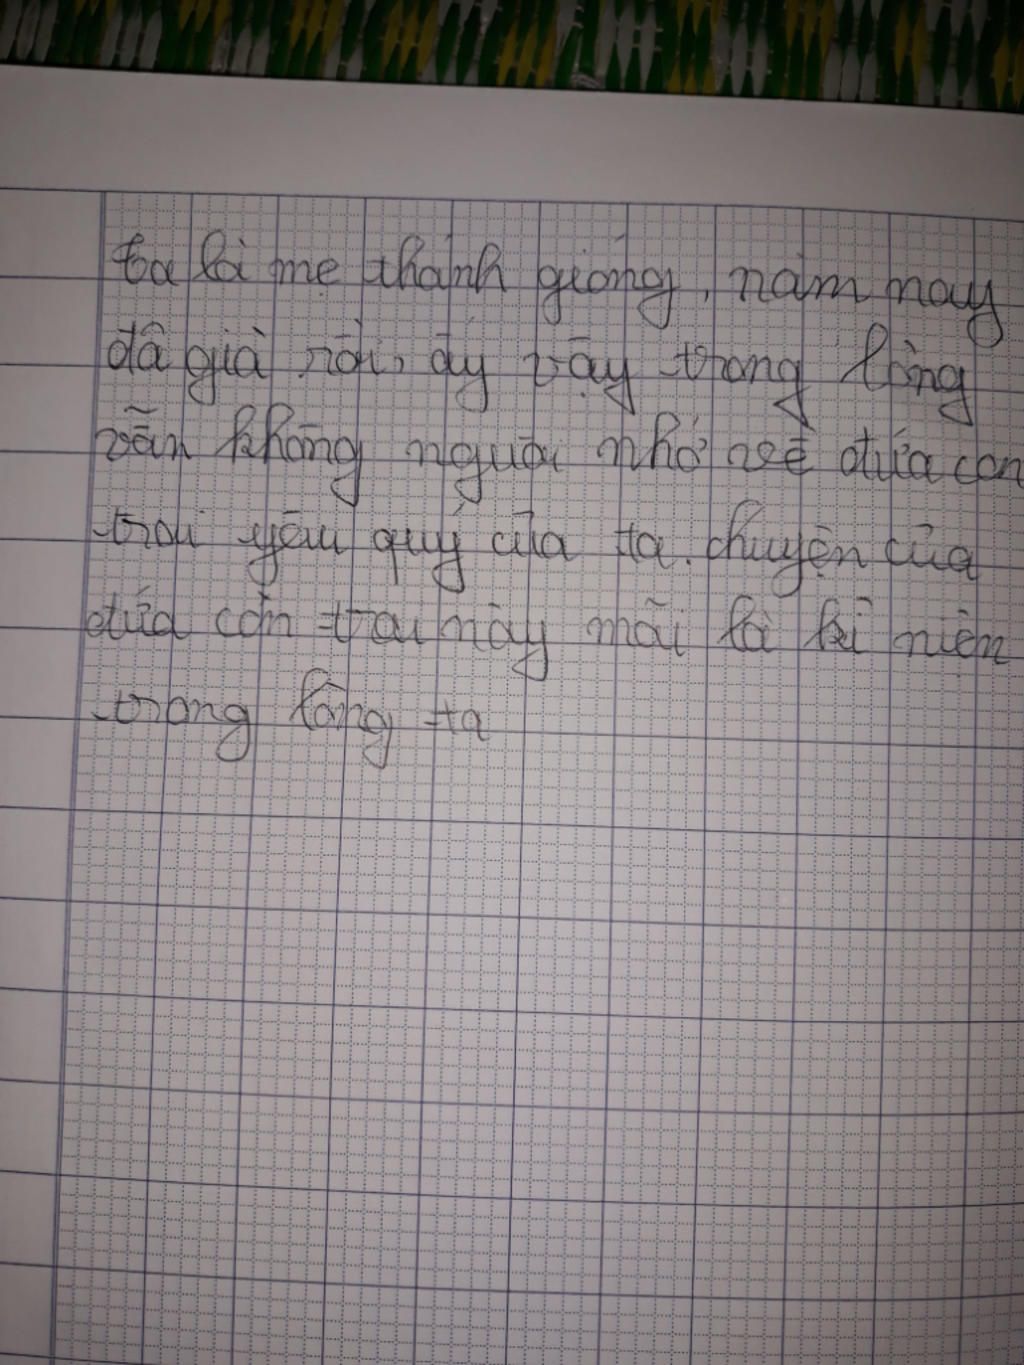 ta là mẹ thánh gióng, năm nay
đã già rồi, ấy vậy trong lòng
vẫn không nguôi nhớ về đứa con
trai yêu quý của ta. chuyện của
đứa con trai này mãi là kỉ niện
trong lòng ta